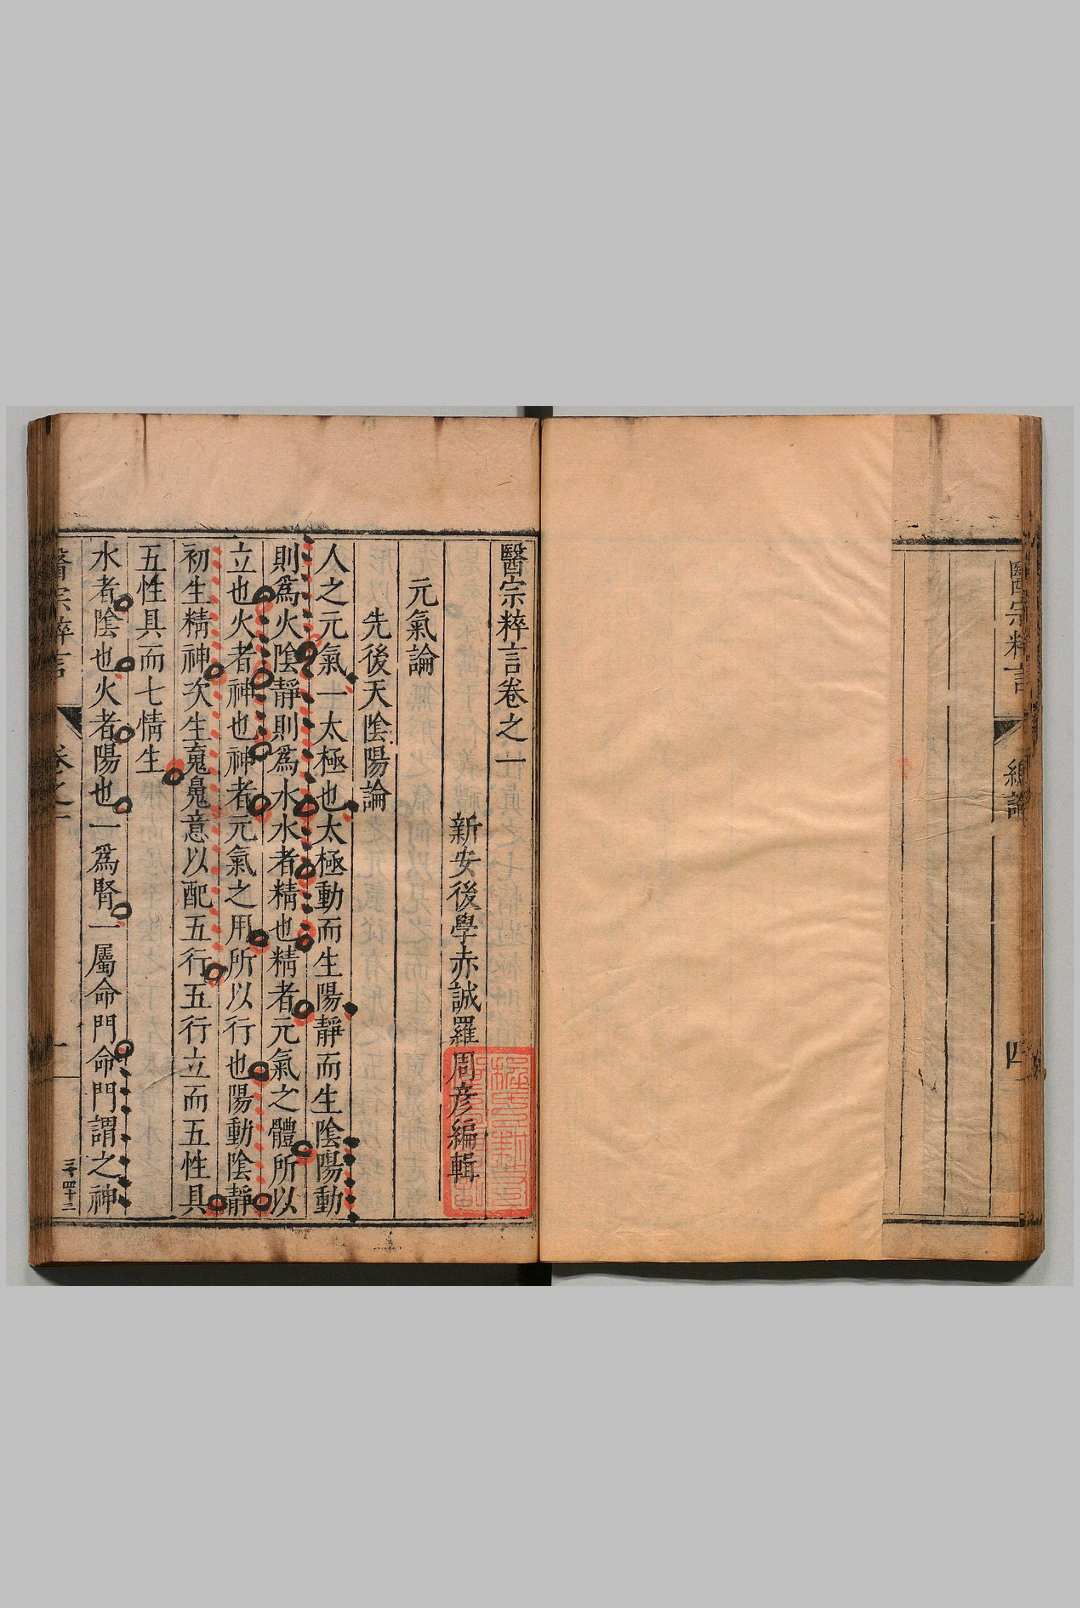 醫宗粹言
總論
四
醫宗粹言卷之一
新安後學赤誠羅周彦編輯
元氣論
先後天陰陽論
人之元氣一太極也太極動而生陽靜而生陰陽動
則爲火陰靜則爲水水者精也精者元氣之體所以
立也火者神也神者元氣之用所以行也陽動陰靜
初生精神次生䰟鬼意以配五行五行立而五性具
五性具而七情生
水者陰也火者陽也一爲腎一屬命門命門謂之神
醫宗粹言
卷之一
一
三千四十三